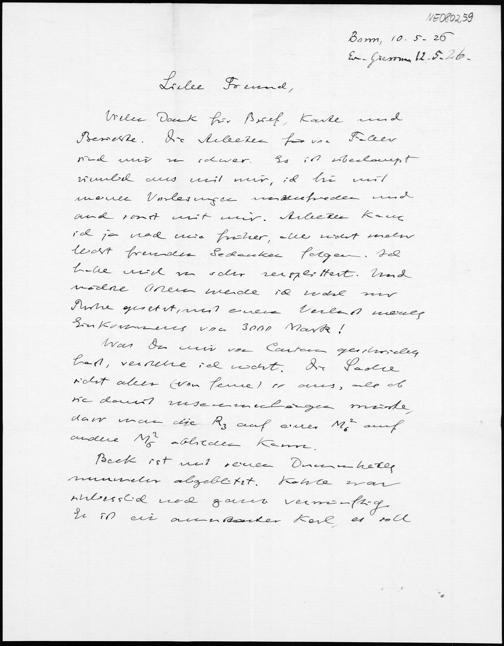 NE080259
Bonn, 10.5-26
12.5-26.
Lieber Freund,
Vielen Dank für Brief, Karte und
Berichte. Die Arbeiten
sind mir zu schwer. Es ist überhaupt
ziemlich aus mit mir, ich bin mit
meinen Vorlesungen unzufrieden und
auch sonst mit mir. Arbeiten kann
ich ja noch wie früher, aber nicht mehr
leicht fremden Gedanken folgen. Ich
habe mich zu sehr zersplittert. Und
nächste Ostern werde ich wohl zur
Ruhe gesetzt, mit einem Verlust meines
Einkommens von 3000 Mark!
Was Du mir von Cartan geschrieben
hast, verstehe ich nicht. Die Sache
sieht aber (von ferne) so aus, als ob
sie damit zusammenhängen müsste,
dass man die R3 auf eines M6² auf
andere M6² abbilden kann.
Beck ist mit seinen Dummheiten
nunmehr abgeblitzt. Kohle war
schliesslich noch ganz vernünftig
Er ist ein Kerl, es soll